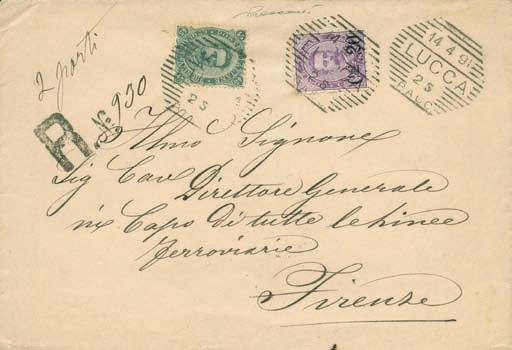 2 porti
R
No 930
14 4 91
LUCCA
2 S
RACC
2 S
Cmi. 20
Almo Signore
Sig Cav Direttore Generale
in Capo di tutte le linee
Ferroviarie
Firenze